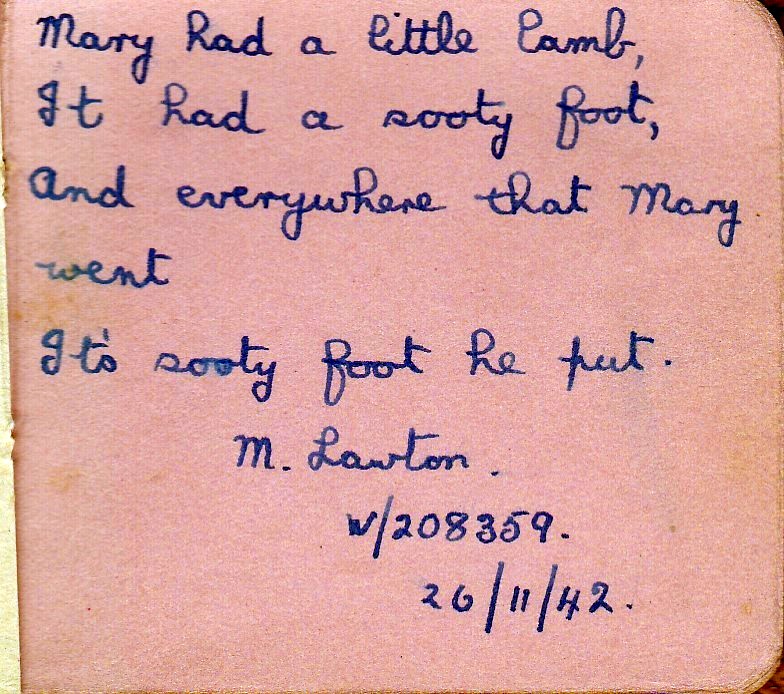 Mary had a little lamb,
It had a sooty foot,
And everywhere that Mary
went
It's sooty foot he put.
M. Lawton.
W/208359.
26/11/42.